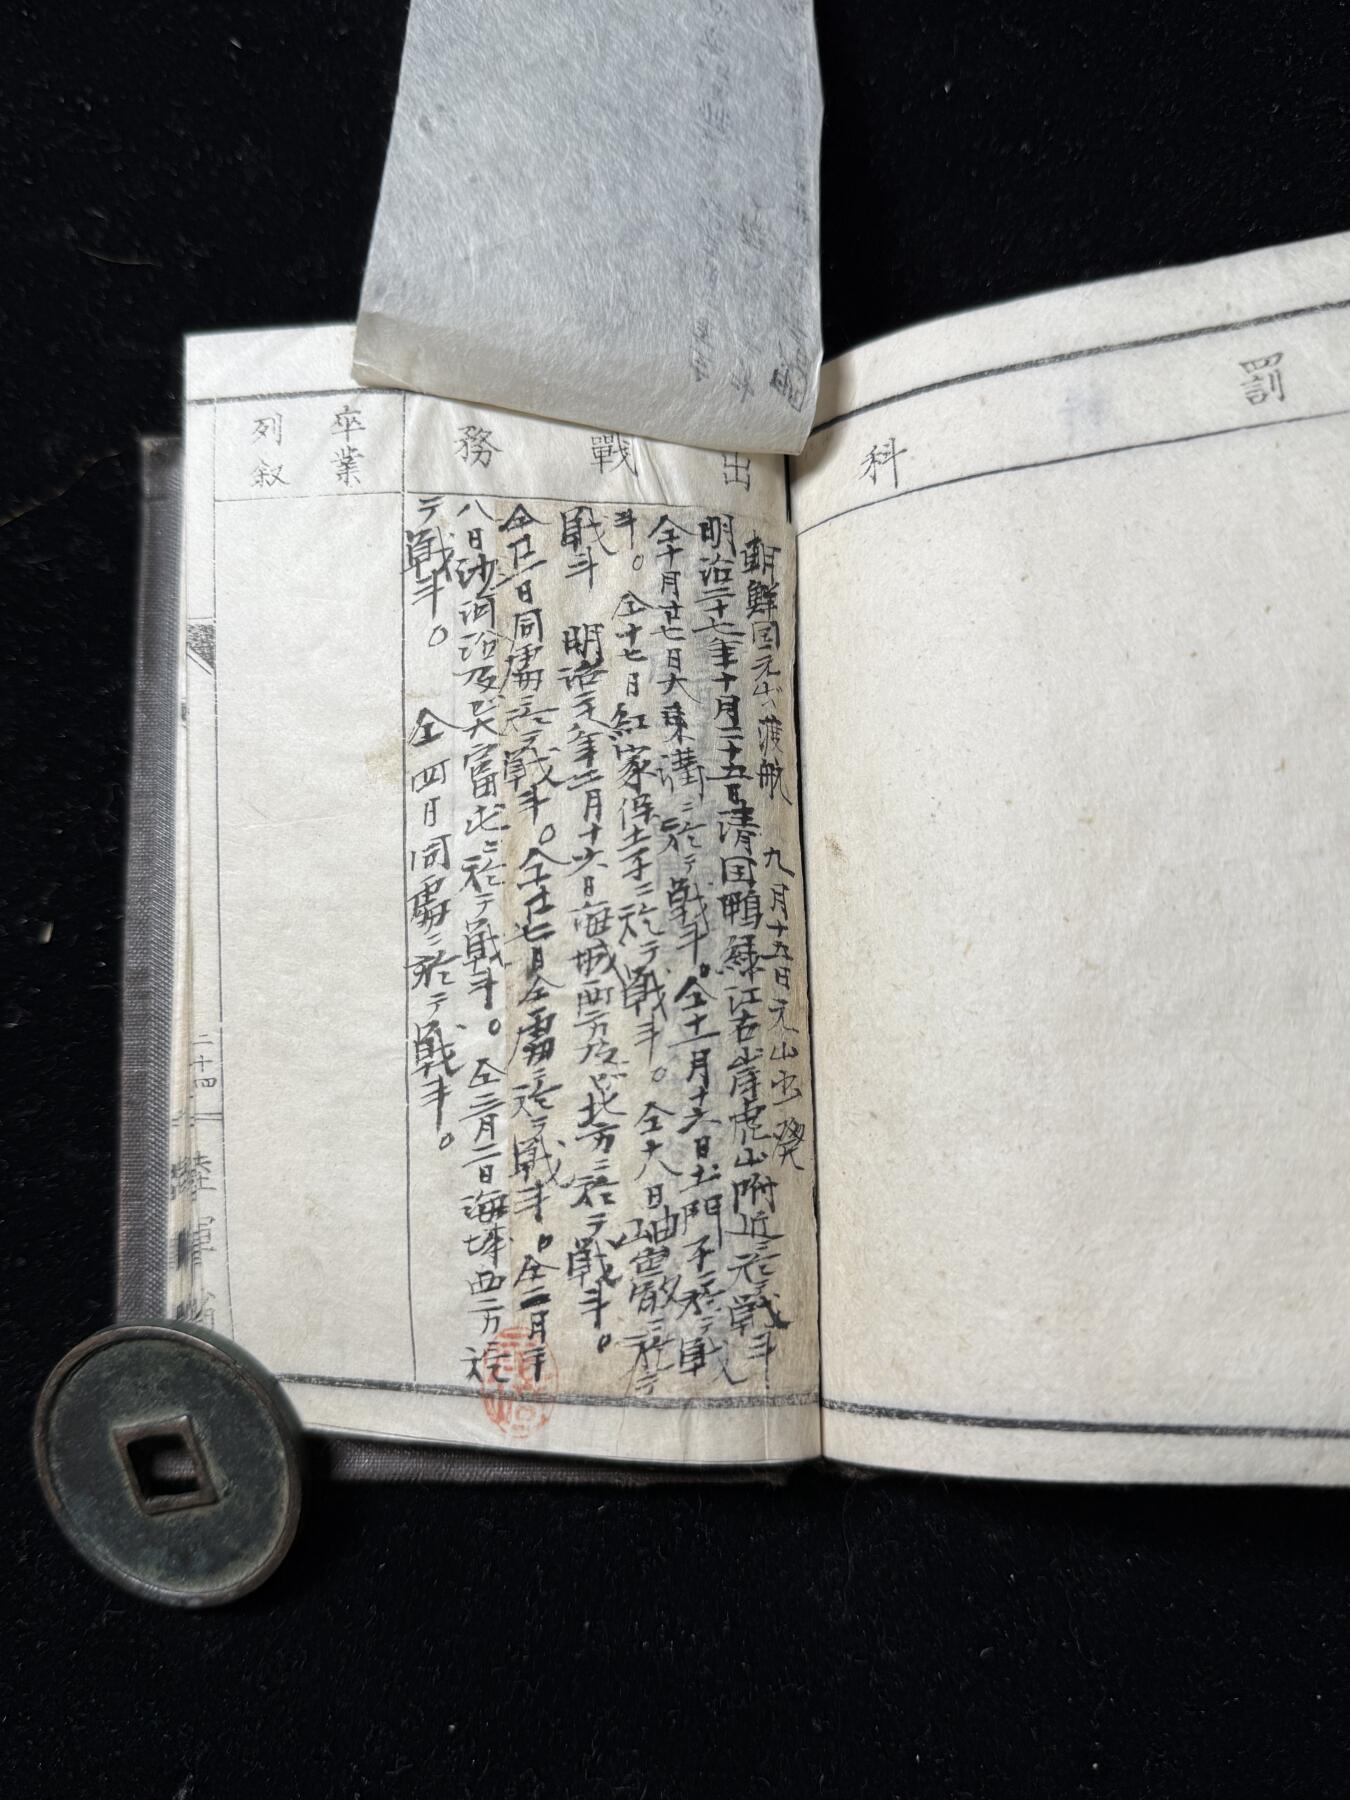 罰
科
出戰務
朝鮮国元山渡航 九月十五日元山出発
明治二十七年十月二十五日清国鴨緑江右岸虎山附近ニ於テ戦斗
仝十月廿七日大東溝ニ於テ戦斗。仝十一月十六日土門子ニ於テ戦
斗。仝十七日紅家保土子ニ於テ戦斗。仝十八日岫巌ニ於テ
戦斗 明治二十八年二月十六日海城西方及ビ北方ニ於テ戦斗。
仝廿一日同処ニ於テ戦斗。仝廿七日仝処ニ於テ戦斗。仝二月二十
八日沙河沿及ビ大富屯ニ於テ戦斗。仝三月二日海城西方ニ於
テ戦斗。 仝四日同処ニ於テ戦斗。
卒業
列叙
二十四
陸軍